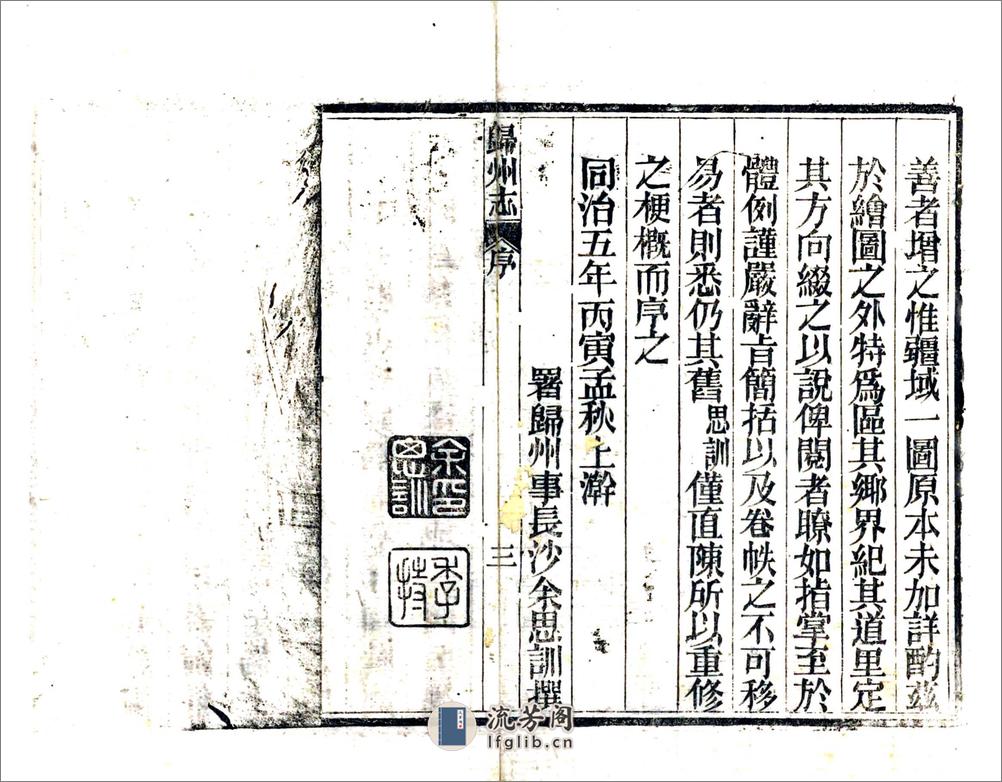 善者增之惟疆域一圖原本未加詳酌茲
於繪圖之外特爲區其鄉界紀其道里定
其方向綴之以說俾閱者瞭如指掌至於
體例謹嚴辭旨簡括以及卷帙之不可移
易者則悉仍其舊思訓僅直陳所以重修
之梗概而序之
同治五年丙寅孟秋上澣
署歸州事長沙余思訓撰
歸州志 序 三
余思訓印
流芳阁
lfglib.cn